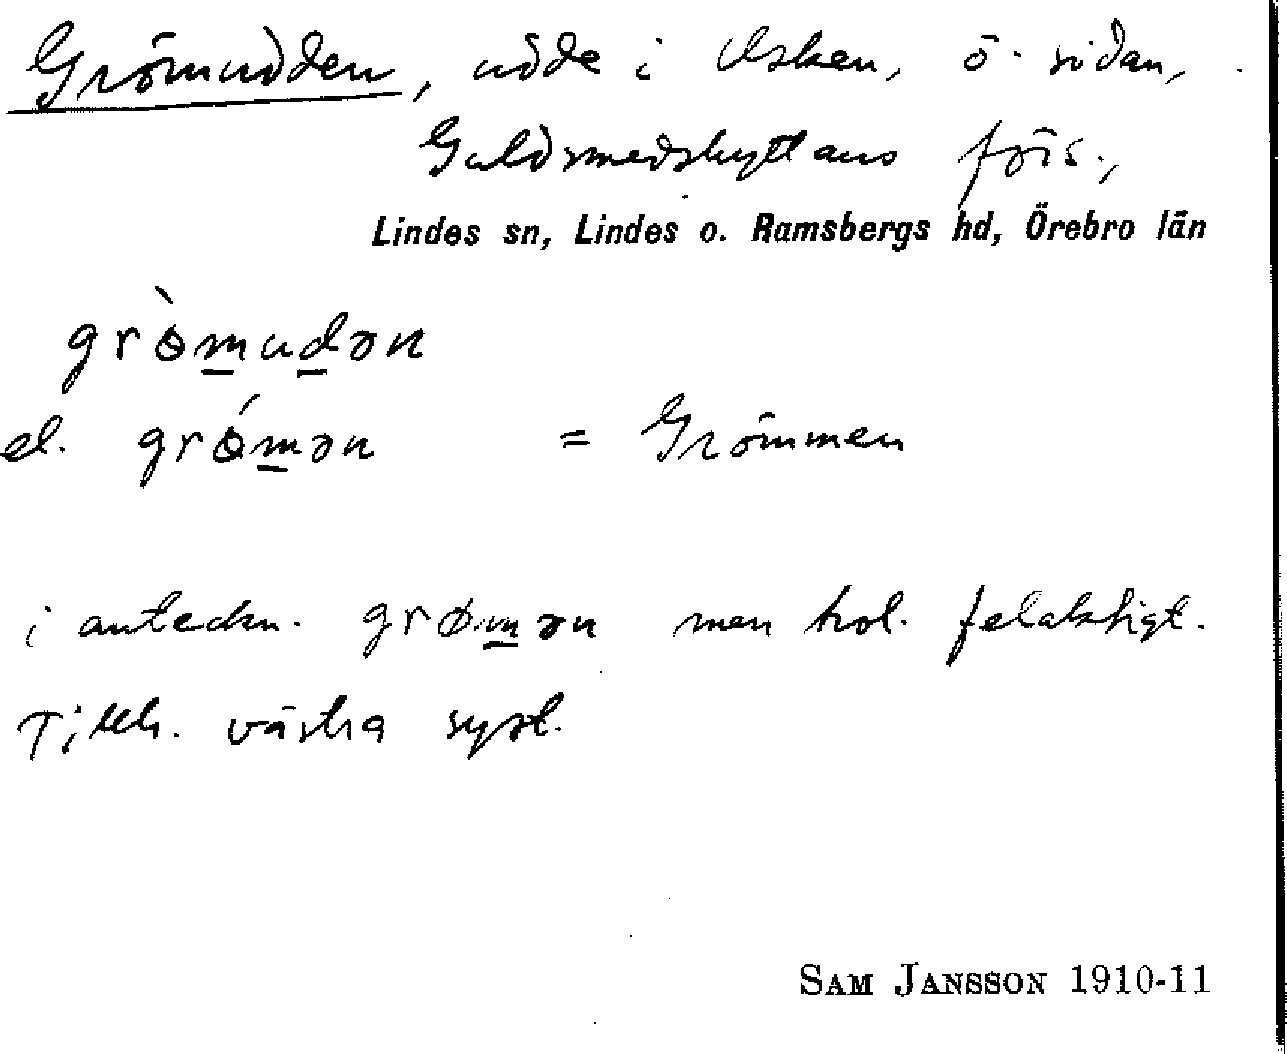 Grömudden, udde i Usken, ö. sidan,
Guldsmedshyttans förs.,
Lindes sn, Lindes o. Ramsbergs hd, Örebro län
grɵ̀m̲ud̲ən
el. grɵ́m̲ən = Grömmen
i anteckn. grøm̲ən men trol. felaktigt.
Tillh. västra syst.
SAM JANSSON 1910-11